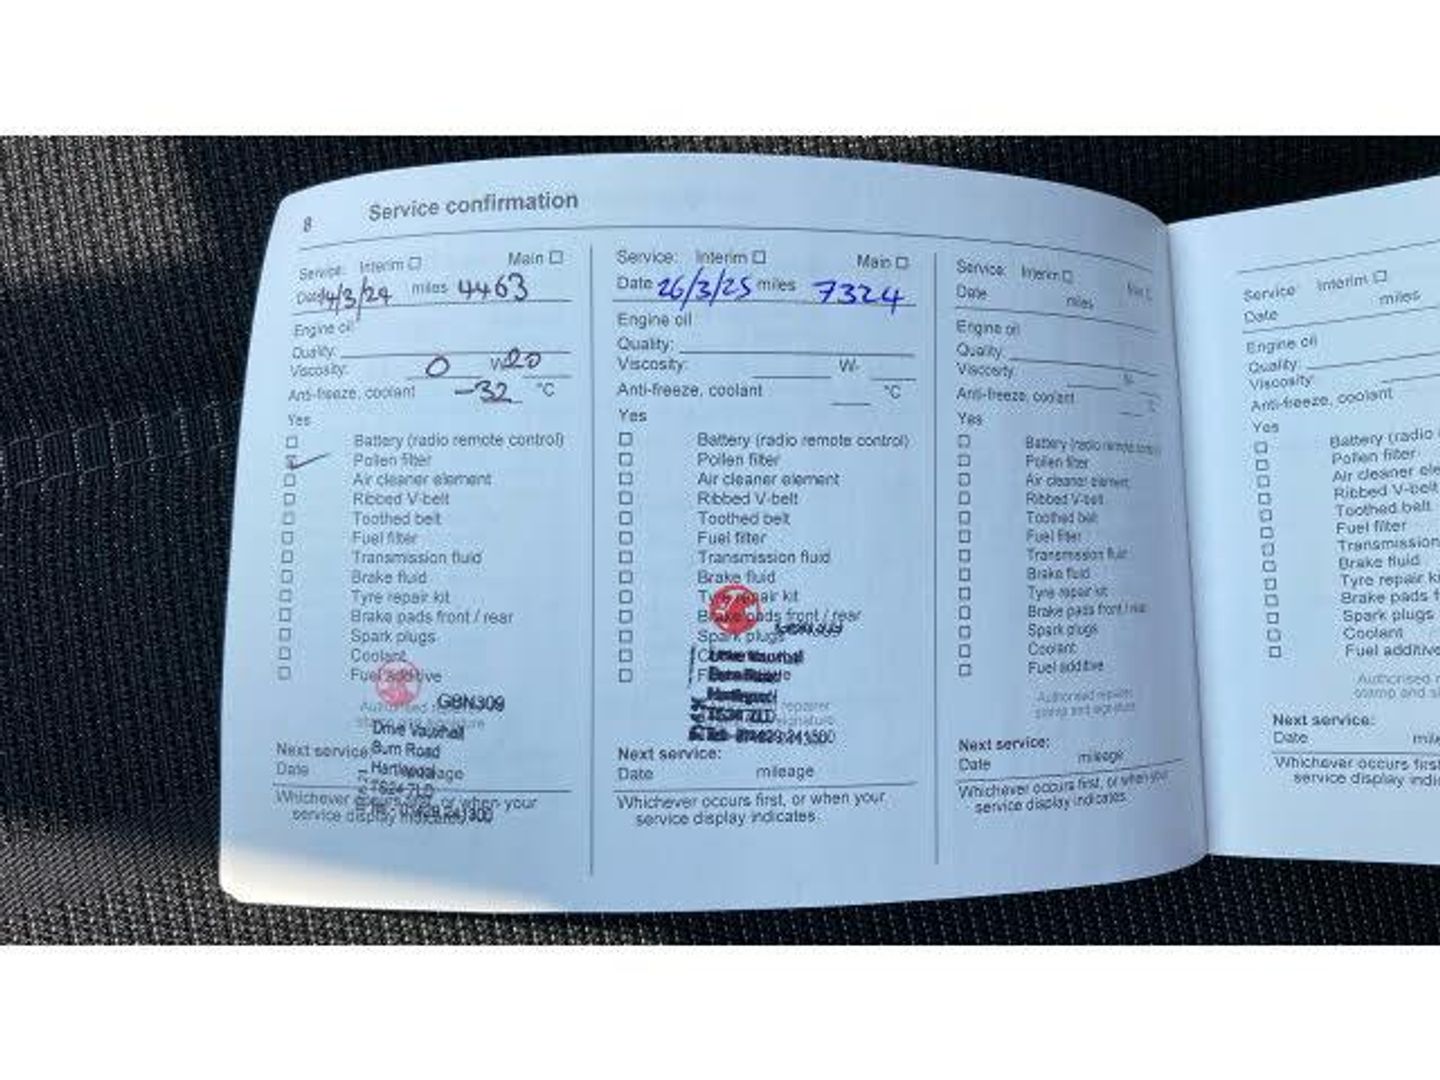 8 Service confirmation
Service: Interim Main
Date 14/3/24 miles 4463
Engine oil
Quality:
Viscosity: 0 W-20
Anti-freeze, coolant -32 °C
Yes
Battery (radio remote control)
Pollen filter
Air cleaner element
Ribbed V-belt
Toothed belt
Fuel filter
Transmission fluid
Brake fluid
Tyre repair kit
Brake pads front / rear
Spark plugs
Coolant
Fuel additive
GBN309
Drive Vauxhall
Burn Road
Hartlepool
TS24 7LD
Next service:
Date mileage
Whichever occurs first, or when your
service display indicates.
Service: Interim Main
Date 26/3/25 miles 7324
Engine oil
Quality:
Viscosity: W-
Anti-freeze, coolant °C
Yes
Battery (radio remote control)
Pollen filter
Air cleaner element
Ribbed V-belt
Toothed belt
Fuel filter
Transmission fluid
Brake fluid
Tyre repair kit
Brake pads front / rear
Spark plugs
Drive Vauxhall
Burn Road
Hartlepool
TS24 7LD repairer
signature
Next service:
Date mileage
Whichever occurs first, or when your
service display indicates.
Service: Interim
Date miles
Engine oil
Quality:
Viscosity:
Anti-freeze, coolant
Yes
Battery (radio remote control)
Pollen filter
Air cleaner element
Ribbed V-belt
Toothed belt
Fuel filter
Transmission fluid
Brake fluid
Tyre repair kit
Brake pads front / rear
Spark plugs
Coolant
Fuel additive
Authorised repairer
stamp and signature
Next service:
Date mileage
Whichever occurs first, or when your
service display indicates.
Service: Interim
Date miles
Engine oil
Quality:
Viscosity:
Anti-freeze, coolant
Yes
Battery (radio
Pollen filter
Air cleaner
Ribbed V-belt
Toothed belt
Fuel filter
Transmission
Brake fluid
Tyre repair
Brake pads
Spark plugs
Coolant
Fuel additive
Authorised
stamp and
Next service:
Date
Whichever occurs first
service display